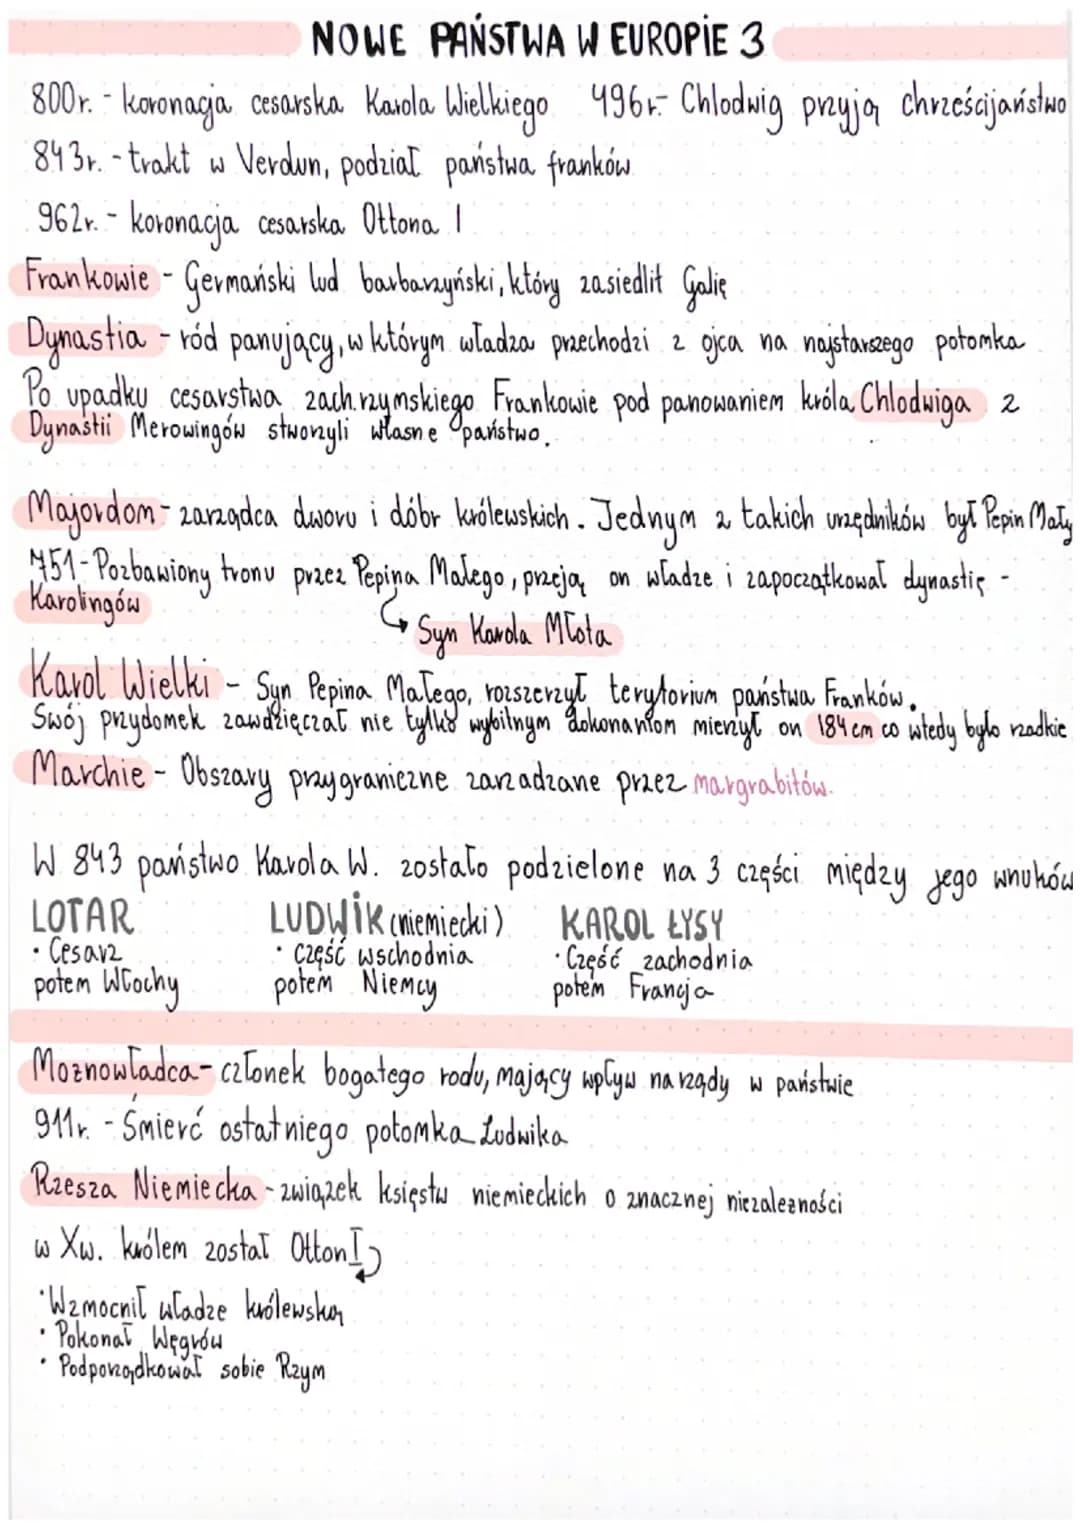 NOWE PAŃSTWA W EUROPIE 3
800r. - koronacja cesarska Karola Wielkiego 496r- Chlodwig przyją chrześcijaństwo
843r. - trakt w Verdun, podział państwa franków
962r. - koronacja cesarska Ottona I
Frankowie - Germański lud barbarzyński, który zasiedlił Galię
Dynastia - ród panujący, w którym władza przechodzi z ojca na najstarszego potomka
Po upadku cesarstwa zach.rzymskiego Frankowie pod panowaniem króla Chlodwiga z
Dynastii Merowingów stworzyli własne państwo.
Majordom - zarządca dworu i dóbr królewskich. Jednym z takich urzędników był Pepin Mały
751 - Pozbawiony tronu przez Pepina Małego, przeją on władze i zapoczątkował dynastię -
Karolingów
Syn Karola Młota
Karol Wielki - Syn Pepina Małego, rozszerzył terytorium państwa Franków.
Swój przydomek zawdzięczał nie tylko wybitnym dokonaniom mierzył on 184 cm co wtedy było rzadkie
Marchie - Obszary przygraniczne zarzadzane przez margrabitów.
W 843 państwo Karola W. zostało podzielone na 3 części między jego wnuków
LOTAR LUDWIK (niemiecki) KAROL ŁYSY
• Cesarz • część wschodnia • Część zachodnia
potem Włochy potem Niemcy potem Francja
Możnowładca - członek bogatego rodu, mający wpływ na rządy w państwie
911r. - Śmierć ostatniego potomka Ludwika
Rzesza Niemiecka - związek księstw niemieckich o znacznej niezależności
w Xw. królem został Otton I
• Wzmocnił władze królewską
• Pokonał Węgrów
• Podporządkował sobie Rzym